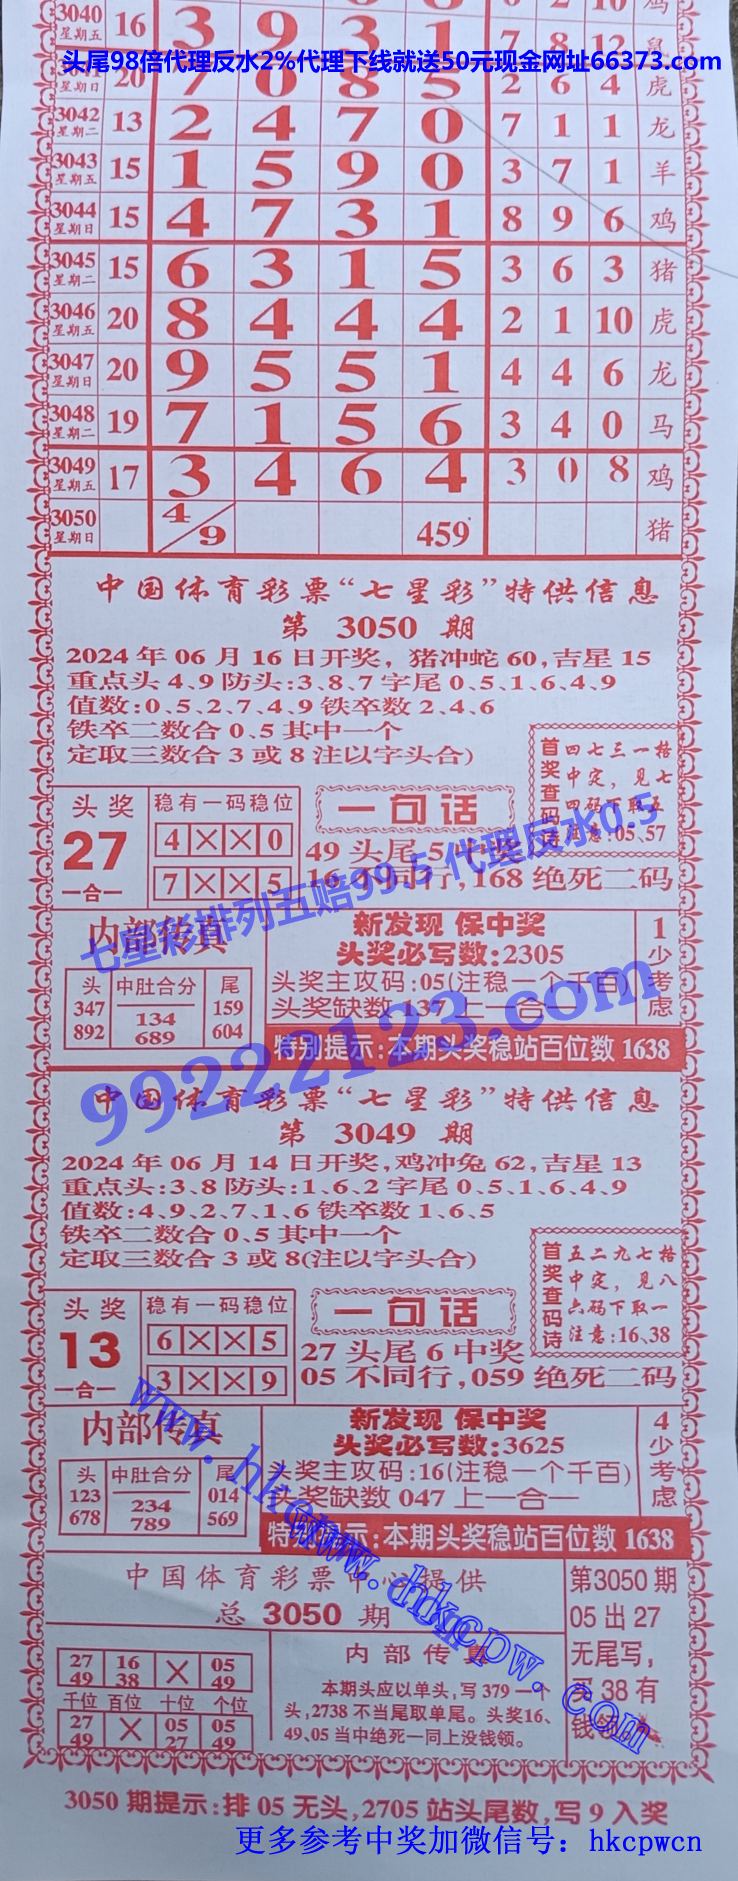 3040 星期五 16 3 9 3 1 6 2 10 鸡
7 8 12 鼠
头尾98倍代理反水2%代理下线就送50元现金网址66373.com
3041 星期日 20 7 0 8 5 2 6 4 虎
3042 星期二 13 2 4 7 0 7 1 1 龙
3043 星期五 15 1 5 9 0 3 7 1 羊
3044 星期日 15 4 7 3 1 8 9 6 鸡
3045 星期二 15 6 3 1 5 3 6 3 猪
3046 星期五 20 8 4 4 4 2 1 10 虎
3047 星期日 20 9 5 5 1 4 4 6 龙
3048 星期二 19 7 1 5 6 3 4 0 马
3049 星期五 17 3 4 6 4 3 0 8 鸡
3050 星期日 4/9 459 猪
中国体育彩票“七星彩”特供信息
第 3050 期
2024年06月16日开奖，猪冲蛇60,吉星15
重点头4、9防头:3、8、7字尾0、5、1、6、4、9
值数:0、5、2、7、4、9铁卒数2、4、6
铁卒二数合0、5其中一个
定取三数合3或8注以字头合)
首奖查码诗
四七三一格
中定，见七
四码下取五
注意:05、57
头奖
27
一合一
稳有一码稳位
4 × × 0
7 × × 5
一句话
49头尾5中奖
16不同行,168绝死二码
七星彩排列五赔99.5 代理反水0.5
内部传真
头 中肚合分 尾
347 134 159
892 689 604
新发现 保中奖
头奖必写数:2305
头奖主攻码:05(注稳一个千百)
头奖缺数137上一合一
1少考虑
特别提示:本期头奖稳站百位数1638
99222123.com
中国体育彩票“七星彩”特供信息
第 3049 期
2024年06月14日开奖,鸡冲兔62,吉星13
重点头:3、8防头:1、6、2字尾0、5、1、6、4、9
值数:4、9、2、7、1、6铁卒数1、6、5
铁卒二数合0、5其中一个
定取三数合3或8(注以字头合)
首奖查码诗
五二九七格
中定，见八
六码下取一
注意:16、38
头奖
13
一合一
稳有一码稳位
6 × × 5
3 × × 9
一句话
27头尾6中奖
05不同行,059绝死二码
www.hkcpw.com
内部传真
头 中肚合分 尾
123 234 014
678 789 569
新发现 保中奖
头奖必写数:3625
头奖主攻码:16(注稳一个千百)
头奖缺数047上一合一
4少考虑
特别提示:本期头奖稳站百位数1638
www.hkcpw.com
中国体育彩票中心提供
总 3050 期
27/49 16/38 × 05/49
千位 百位 十位 个位
27/49 × 05/27 05/49
内部传真
本期头应以单头,写379一个
头,2738不当尾取单尾。头奖16、
49、05当中绝死一同上没钱领。
第3050期
05出27
无尾写,
买38有
钱领。
3050期提示:排05无头,2705站头尾数,写9入奖
更多参考中奖加微信号：hkcpwcn